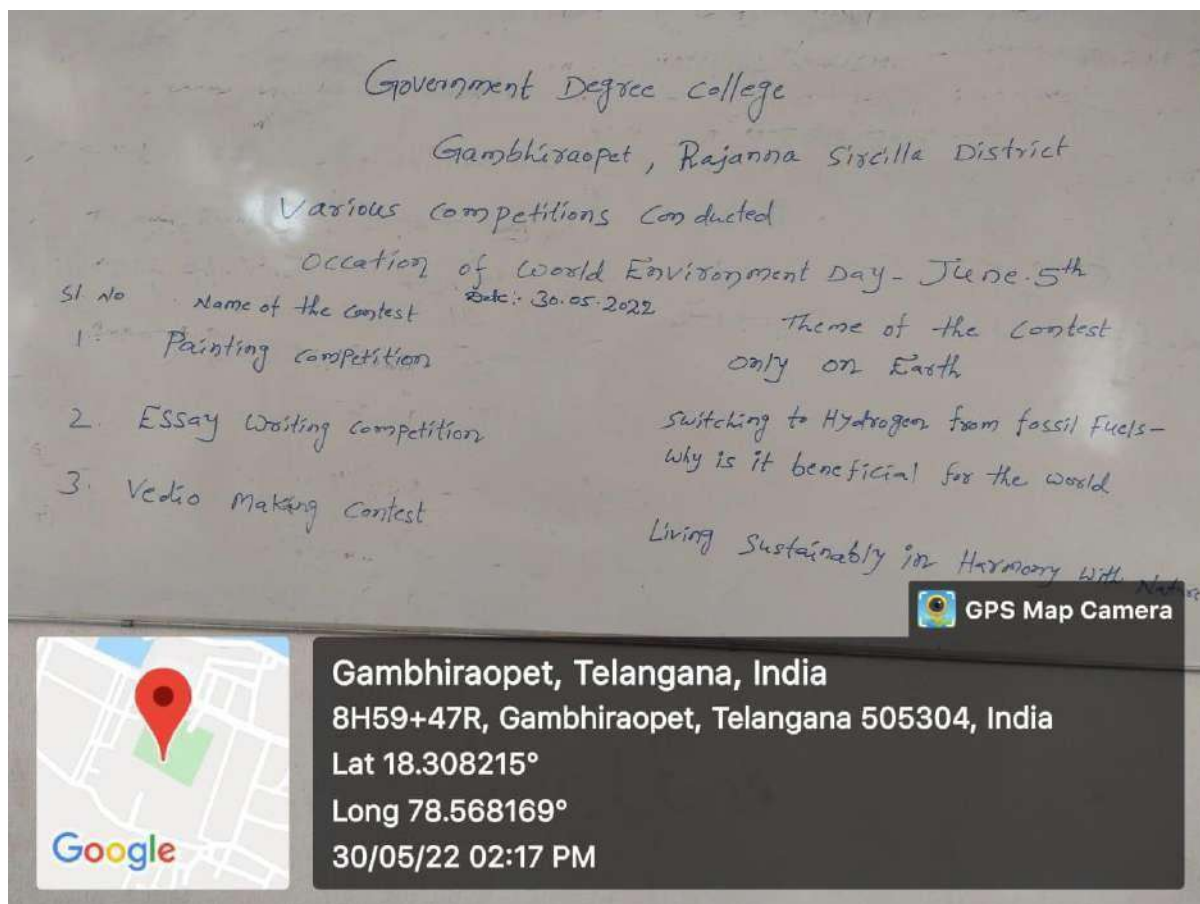 Government Degree college
Gambhiraopet, Rajanna Sircilla District
Various competitions Conducted
Occation of World Environment Day - June.5th
Sl. No Name of the contest Date:- 30.05.2022 Theme of the Contest
1. Painting competition only on Earth
2. Essay Writing competition Switching to Hydrogen from fossil Fuels-
why is it beneficial for the world
3. Vedio Making Contest
Living Sustainably in Harmony With Nature
GPS Map Camera
Gambhiraopet, Telangana, India
8H59+47R, Gambhiraopet, Telangana 505304, India
Lat 18.308215°
Long 78.568169°
30/05/22 02:17 PM
Google